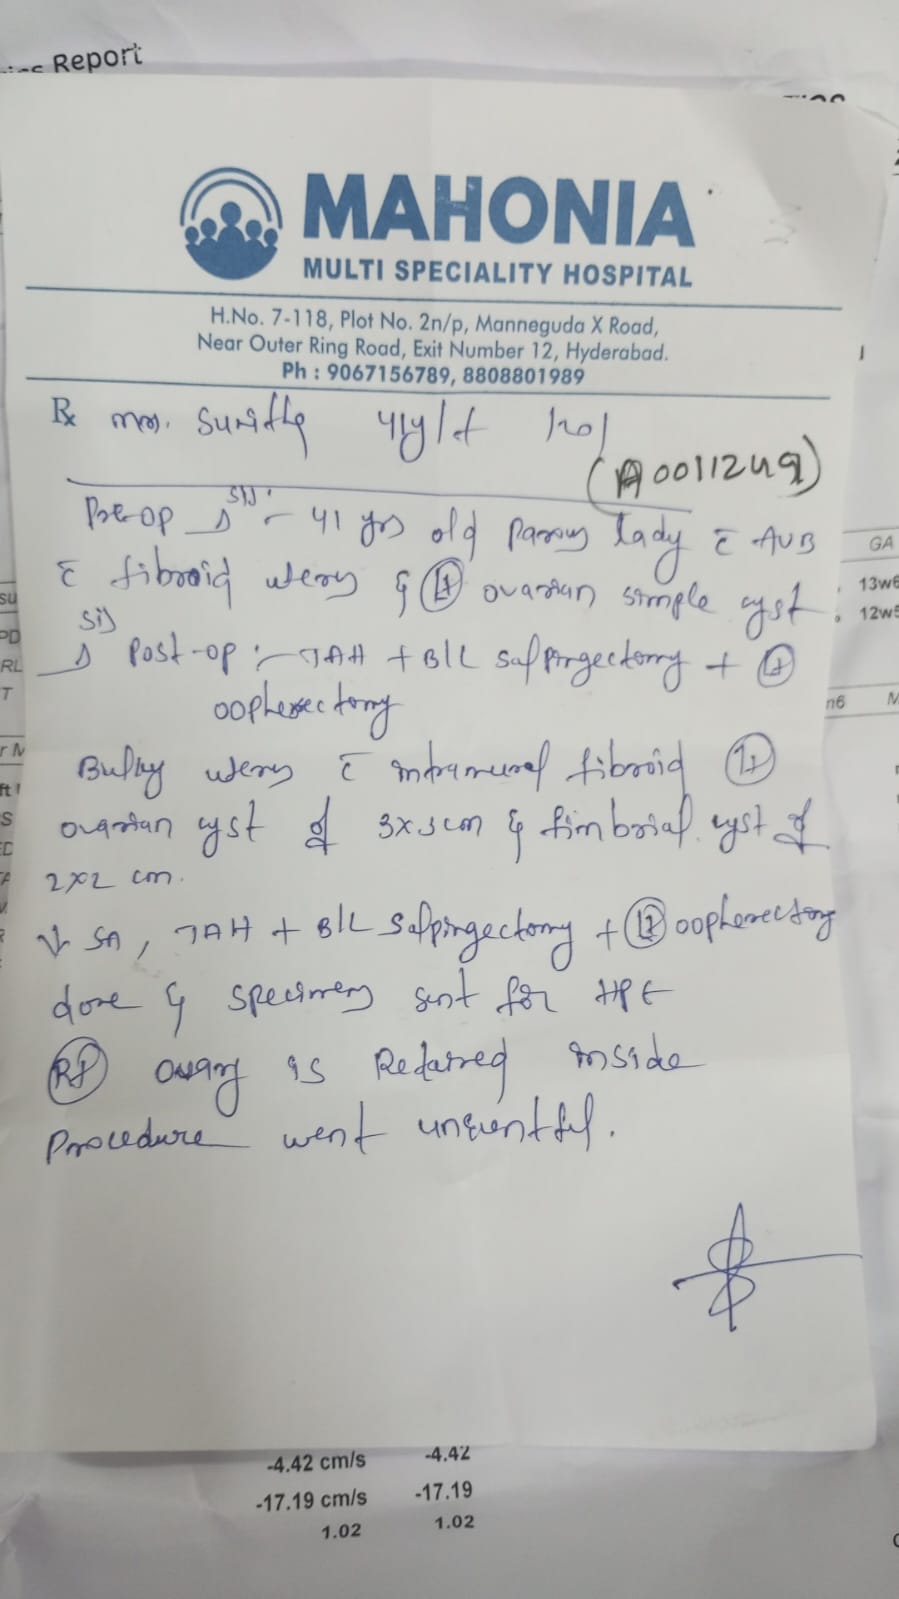 Report
MAHONIA
MULTI SPECIALITY HOSPITAL
H.No. 7-118, Plot No. 2n/p, Manneguda X Road,
Near Outer Ring Road, Exit Number 12, Hyderabad.
Ph : 9067156789, 8808801989
Rx Mrs. Sunitha 41y/f
(A0011249)
Pre-op :- 41 yrs old Parous lady c̄ AUB
c̄ fibroid uterus & Lt ovarian simple cyst
Post-op :- TAH + B/L Salpingectomy + Lt
oopherectomy
Bulky uterus c̄ intramural fibroid Lt
ovarian cyst of 3x3cm & fimbrial cyst of
2x2 cm.
SA, TAH + B/L Salpingectomy + Lt oopherectomy
done & specimens sent for HPE
Rt ovary is Retained inside
Procedure went uneventful.
GA
13w6
12w5
-4.42 cm/s -4.42
-17.19 cm/s -17.19
1.02 1.02